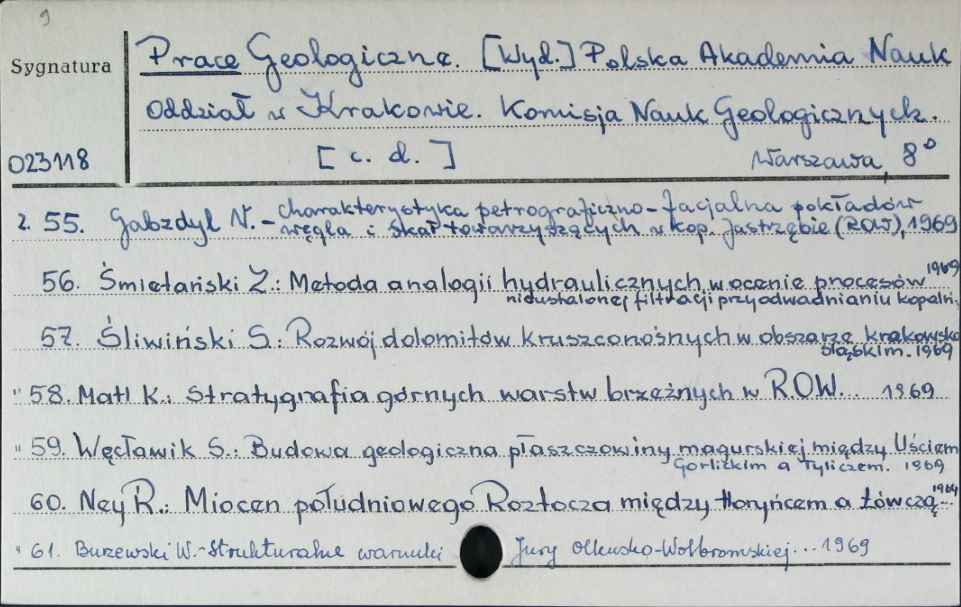 9
Sygnatura
Prace Geologiczne. [Wyd.] Polska Akademia Nauk
Oddział w Krakowie. Komisja Nauk Geologicznych.
023118 [c. d.] Warszawa, 8°
z. 55. Gabzdyl W. - charakterystyka petrograficzno-facjalna pokładów
węgla i skał towarzyszących w kop. Jastrzębie (ROW), 1969
56. Śmietański Z.: Metoda analogii hydraulicznych w ocenie procesów 1969
nieustalonej filtracji przy odwadnianiu kopalń.
57. Śliwiński S.: Rozwój dolomitów kruszconośnych w obszarze krakowsko
śląskim. 1969
" 58. Matl K.: Stratygrafia górnych warstw brzeżnych w R.O.W... 1969
" 59. Węcławik S.: Budowa geologiczna płaszczowiny magurskiej między Uściem
Gorlickim a Tyliczem. 1969
60. Ney R.: Miocen południowego Roztocza między Horyńcem a Łówczą... 1969
" 61. Buzewski W. - Strukturalne warunki Jury Olkusko-Wolbromskiej... 1969